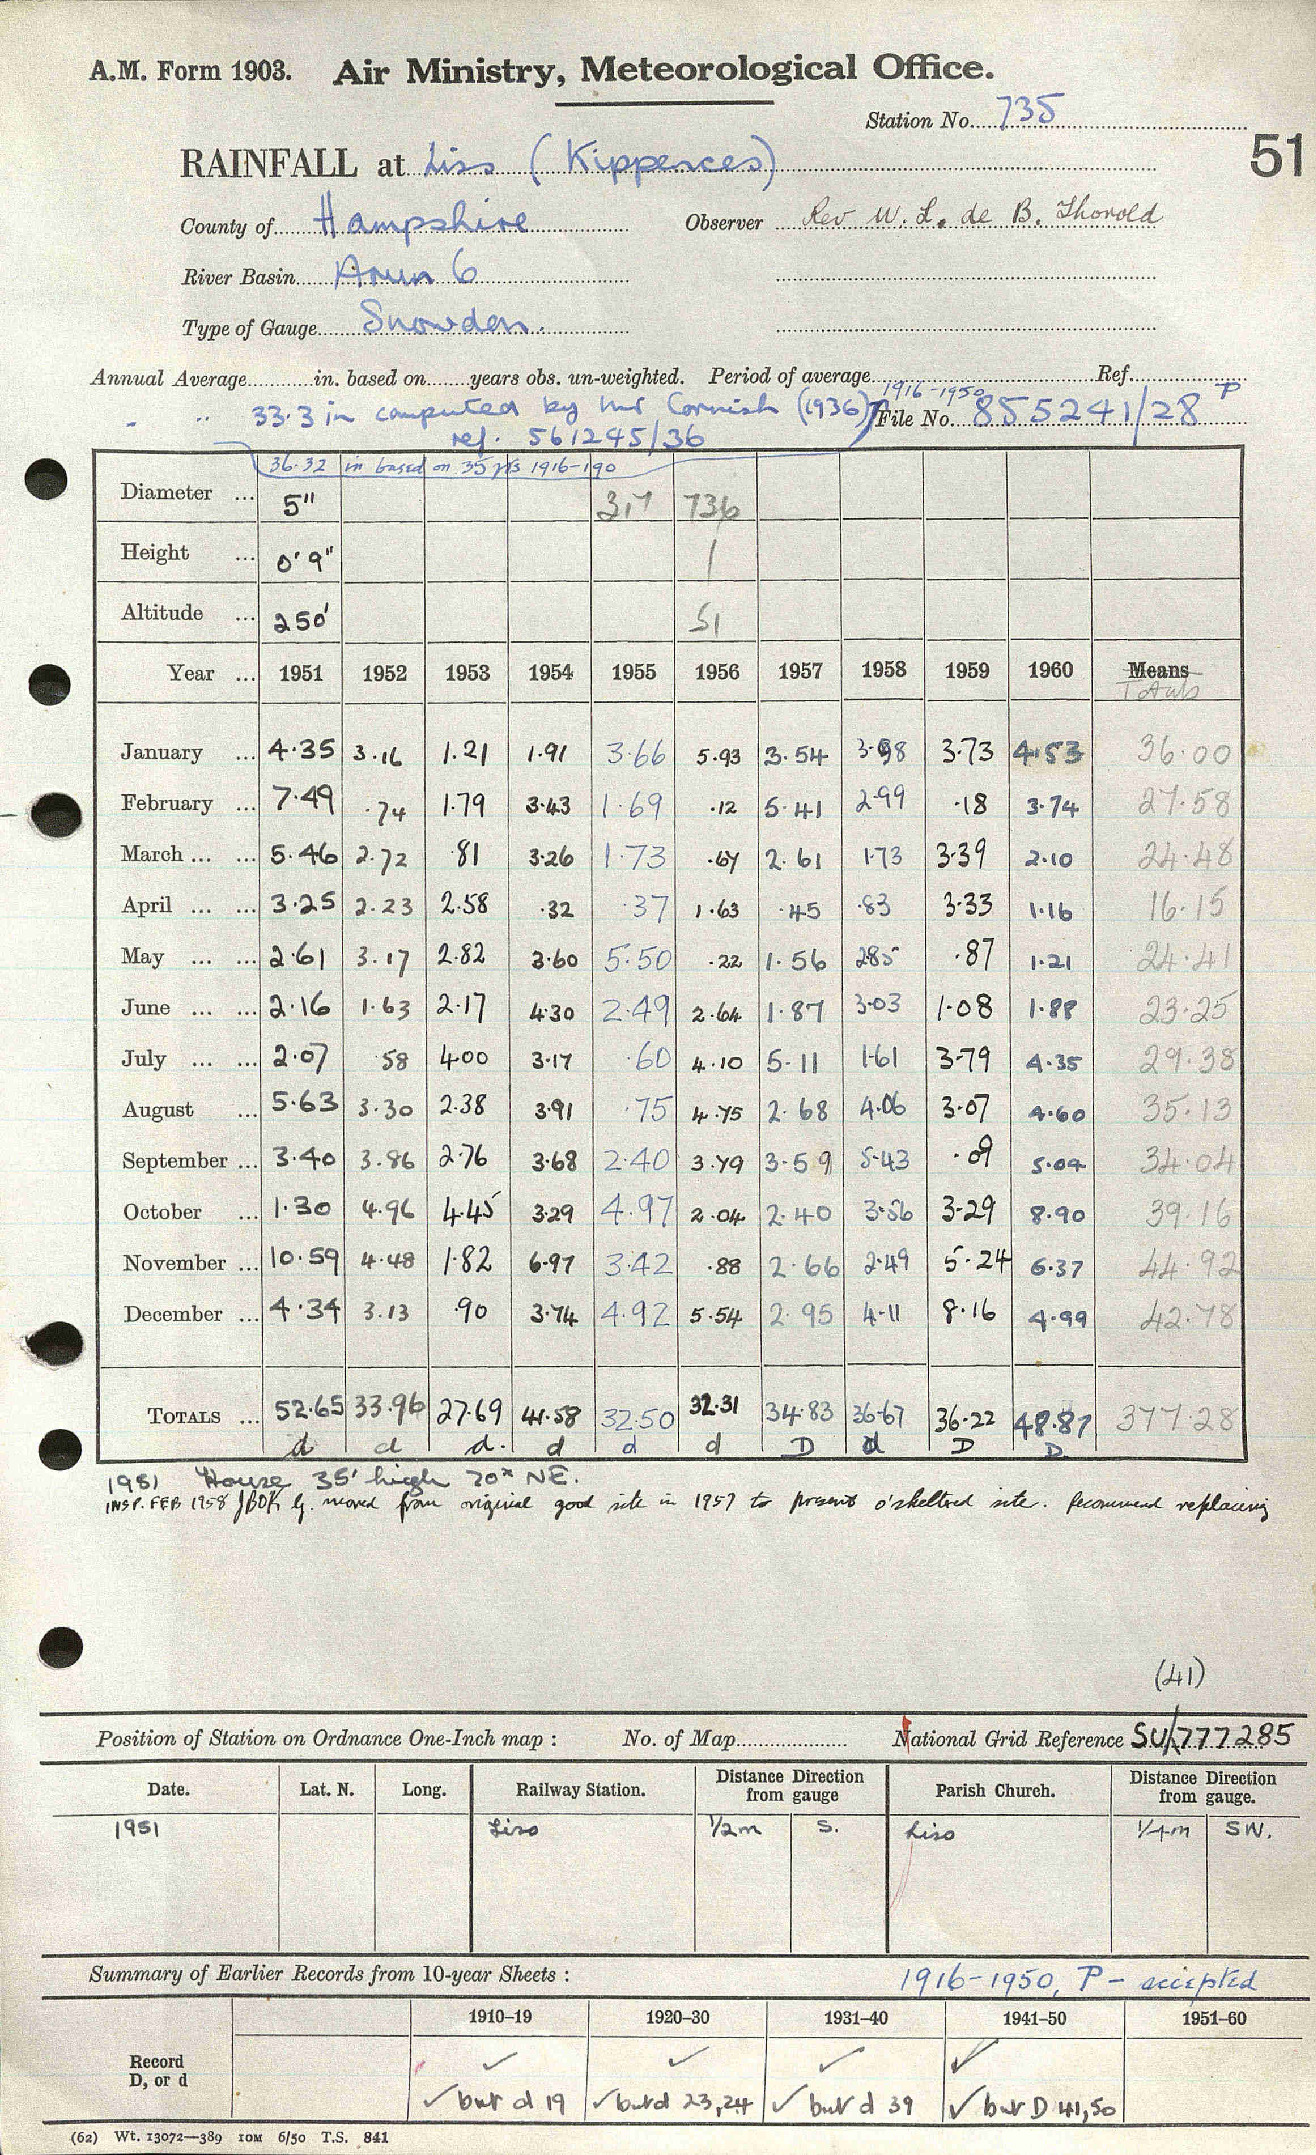 A.M. Form 1903. Air Ministry, Meteorological Office.
Station No. 735
51
RAINFALL at Liss (Kippences)
County of Hampshire Observer Rev W. L. de B. Thorold
River Basin Arun 6
Type of Gauge Snowden.
Annual Average in. based on years obs. un-weighted. Period of average 1916-1950 Ref.
" " 33.3 in computed by Mr Cornish (1936) File No. 855241/28 P
ref. 561245/36
36.32 in based on 35 yrs 1916-190
Diameter ... 5" 3,7 736
Height ... 0' 9" 1
Altitude ... 250' 51
Year ... 1951 1952 1953 1954 1955 1956 1957 1958 1959 1960 Means
Totals
January ... 4.35 3.16 1.21 1.91 3.66 5.93 3.54 3.98 3.73 4.53 36.00
February ... 7.49 .74 1.79 3.43 1.69 .12 5.41 2.99 .18 3.74 27.58
March ... ... 5.46 2.72 .81 3.26 1.73 .67 2.61 1.73 3.39 2.10 24.48
April ... ... 3.25 2.23 2.58 .32 .37 1.63 .45 .83 3.33 1.16 16.15
May ... ... 2.61 3.17 2.82 3.60 5.50 .22 1.56 2.85 .87 1.21 24.41
June ... ... 2.16 1.63 2.17 4.30 2.49 2.64 1.87 3.03 1.08 1.88 23.25
July ... ... 2.07 .58 4.00 3.17 .60 4.10 5.11 1.61 3.79 4.35 29.38
August ... 5.63 3.30 2.38 3.91 .75 4.75 2.68 4.06 3.07 4.60 35.13
September ... 3.40 3.86 2.76 3.68 2.40 3.79 3.59 5.43 .09 5.04 34.04
October ... 1.30 4.96 4.45 3.29 4.97 2.04 2.40 3.56 3.29 8.90 39.16
November ... 10.59 4.48 1.82 6.97 3.42 .88 2.66 2.49 5.24 6.37 44.92
December ... 4.34 3.13 .90 3.74 4.92 5.54 2.95 4.11 8.16 4.99 42.78
TOTALS ... 52.65 33.96 27.69 41.58 32.50 32.31 34.83 36.67 36.22 48.87 377.28
d d d. d d d D d D D
1951 House 35' high 70ˣ NE.
INSP. FEB 1958 JBDK G. moved from original good site in 1957 to present o'sheltered site. Recommend replacing
(41)
Position of Station on Ordnance One-Inch map : No. of Map National Grid Reference SU/777285
Date. Lat. N. Long. Railway Station. Distance Direction from gauge Parish Church. Distance Direction from gauge.
1951 Liss 1/2m S. Liss 1/4m SW.
Summary of Earlier Records from 10-year Sheets : 1916-1950, P - accepted
1910–19 1920–30 1931–40 1941–50 1951–60
Record D, or d ✓ ✓ ✓ ✓
✓ but d 19 ✓ but d 23,24 ✓ but d 39 ✓ but D 41,50
(62) Wt. 13072—389 10M 6/50 T.S. 841